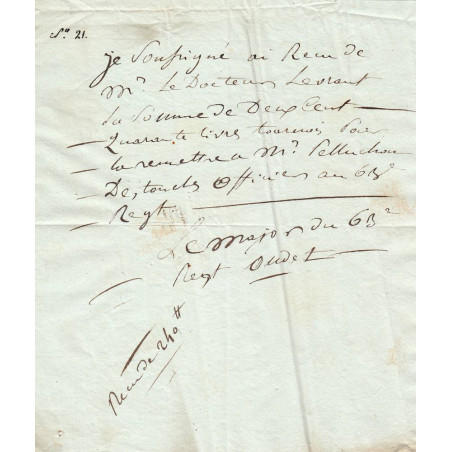 No. 21.
je Soussigné ai Recu de
Mr. Le Docteur Levrant
La Somme de Deux Cent
Quarante livres tournois Pour
La remettre a Mr. Pelluchon
Destouches Officier au 63e
Regt.
Le Major du 63e
Regt Oudet
Recu de 240 ₶